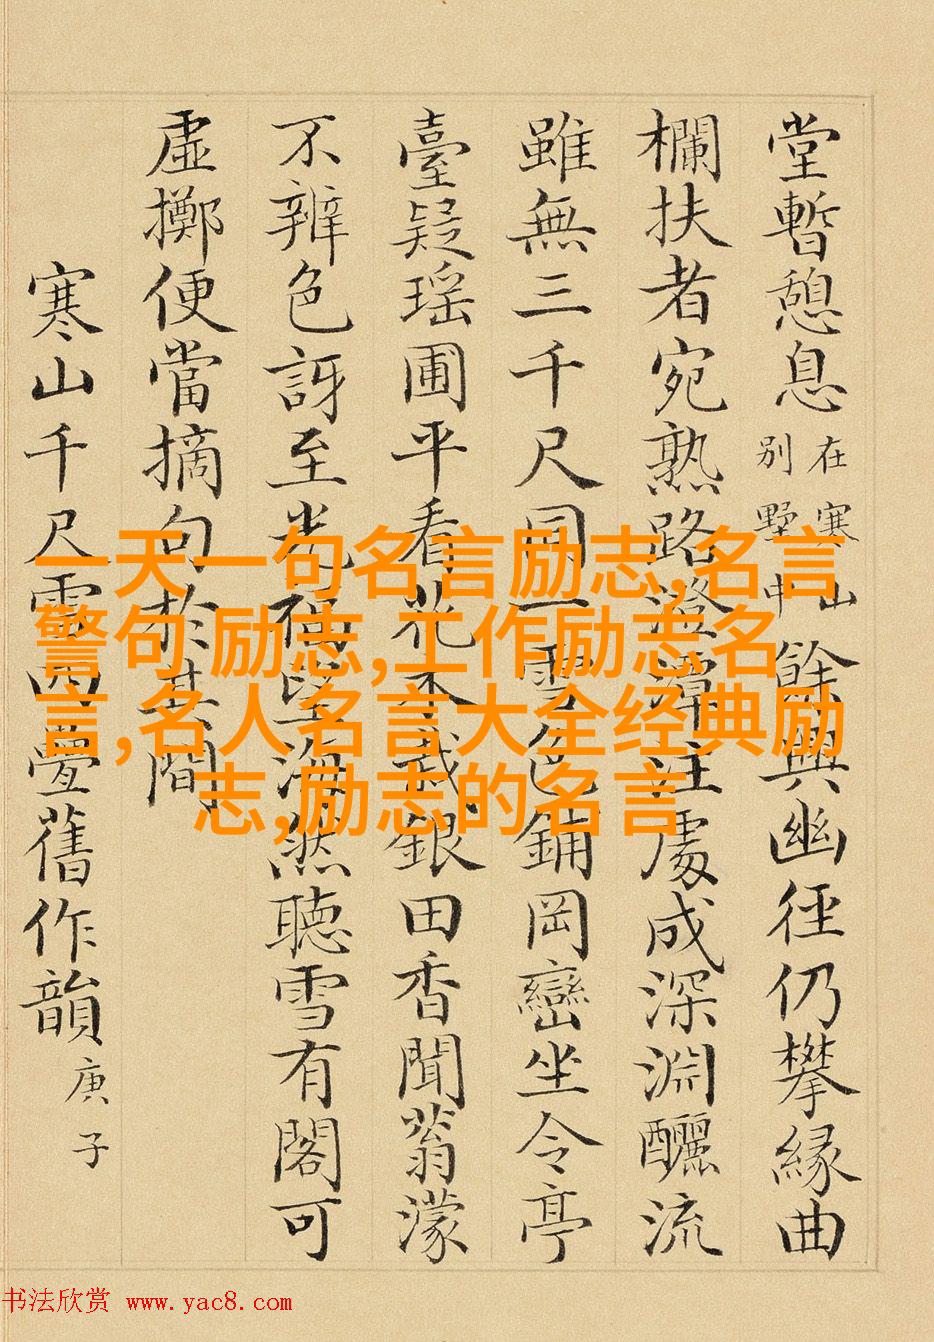 堂暫憩息在寒山別墅中餘興幽徑仍攀緣曲
欄扶者宛熟路澄潭注處成深淵釃流
雖無三千尺同一雪色鋪岡巒坐令亭
臺疑瑤圃平看花木裁銀田香聞蓊濛
不辨色訝至光海然聽雪有閣可
虛擲便當摘句於其間
寒山千尺雪四疊舊作韻庚子
一天一句名言励志,名言
警句 励志,工作励志名
言,名人名言大全经典励
志,励志的名言
书法欣赏 www.yac8.com